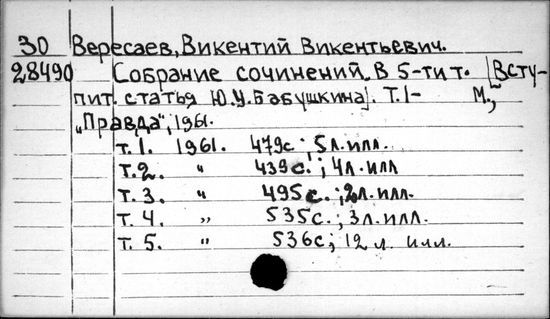 30 Вересаев, Викентий Викентьевич.
28490 Собрание сочинений. В 5-ти т. [Всту-
пит. статья Ю.У. Бабушкина]. Т.1- М.,
„Правда", 1961.
т. 1. 1961. 479с.; 5 л. илл.
т. 2. " 439с.; 4 л. илл
т. 3. " 495с.; 2 л. илл.
т. 4. " 535с.; 3 л. илл.
т. 5. " 536с; 12 л. илл.